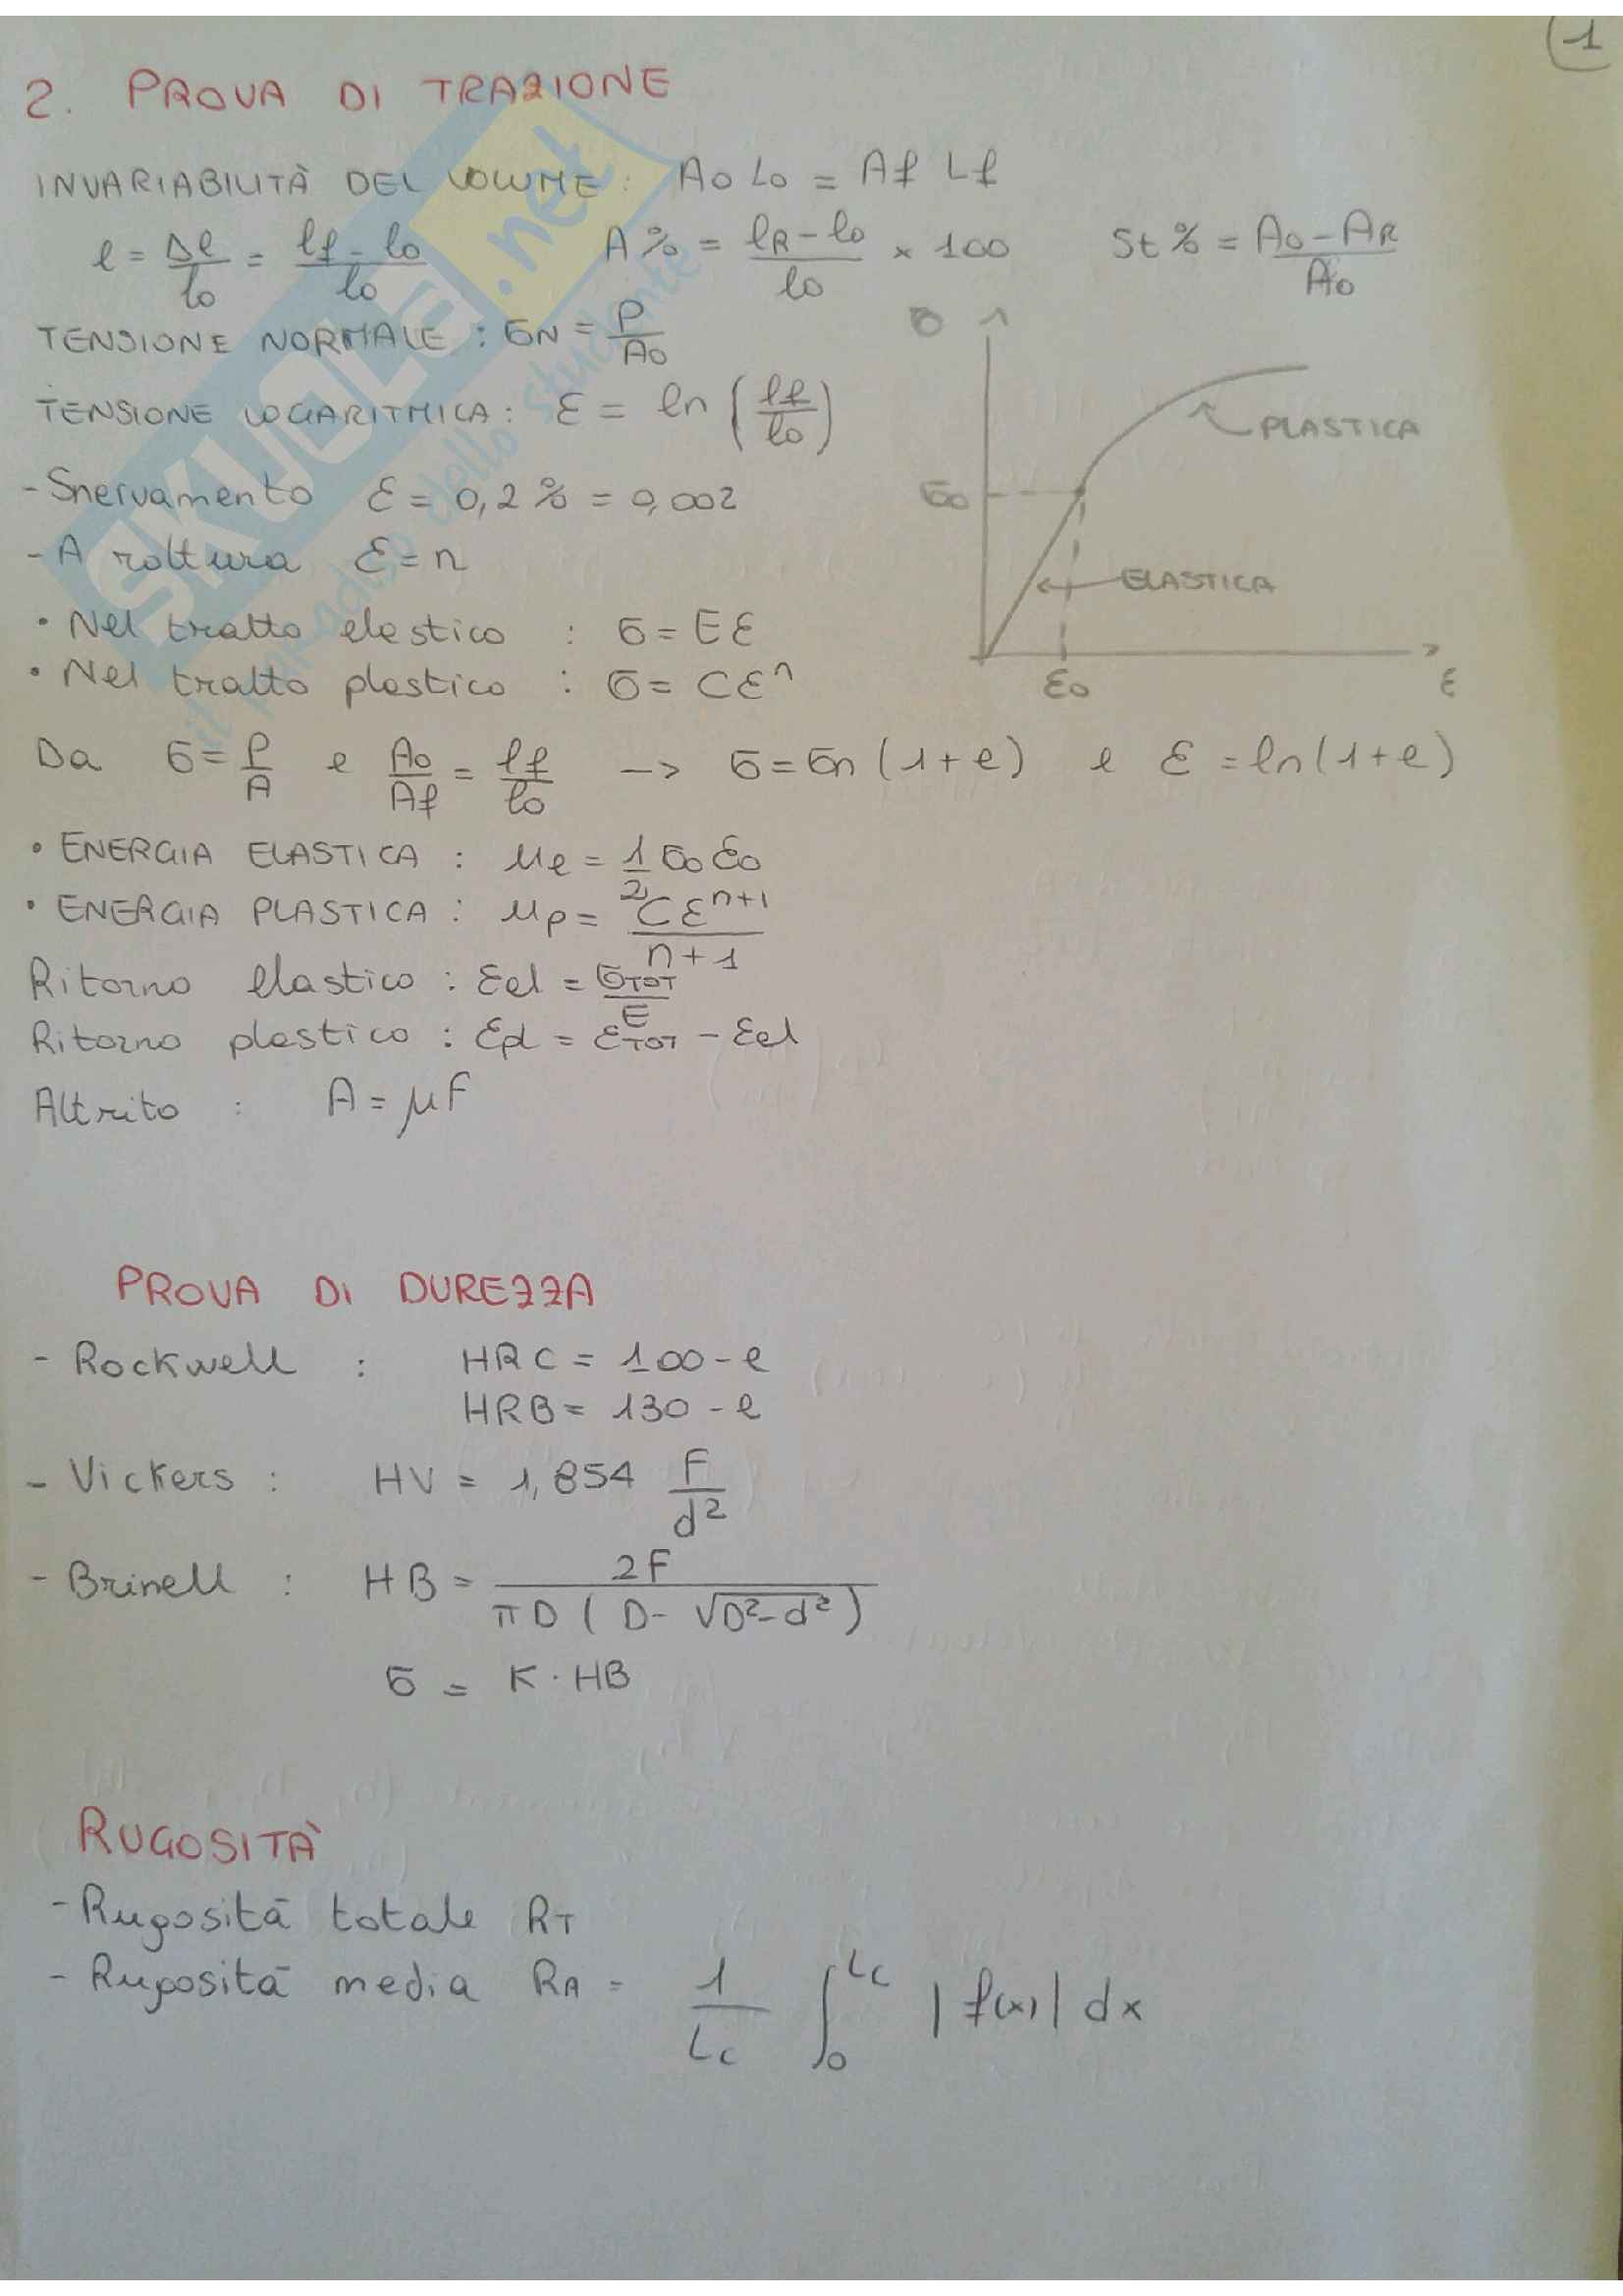 1
2. PROVA DI TRAZIONE
INVARIABILITÀ DEL VOLUME: A0 L0 = Af Lf
e = Δl/l0 = (lf - l0)/l0 A% = (lR - l0)/l0 × 100 St% = (A0 - AR)/A0
TENSIONE NORMALE: σN = P/A0
TENSIONE LOGARITMICA: ε = ln (lf/l0)
- Snervamento ε = 0,2% = 0,002
- A rottura ε = n
• Nel tratto elastico : σ = Eε
• Nel tratto plastico : σ = Cε^n
σ
PLASTICA
σ0
ELASTICA
ε0
ε
Da σ = P/A e A0/Af = lf/l0 -> σ = σn (1+e) e ε = ln(1+e)
• ENERGIA ELASTICA : μe = 1/2 σ0 ε0
• ENERGIA PLASTICA : μp = Cε^(n+1)/(n+1)
Ritorno elastico : εel = σTOT/E
Ritorno plastico : εpl = εTOT - εel
Attrito : A = μF
PROVA DI DUREZZA
- Rockwell : HRC = 100 - e
HRB = 130 - e
- Vickers : HV = 1,854 F/d²
- Brinell : HB = 2F/(πD (D - √(D²-d²)))
σ = K · HB
RUGOSITÀ
- Rugosità totale RT
- Rugosità media RA = 1/Lc ∫0^Lc |f(x)| dx
SKUOLA.net
il paradiso dello studente